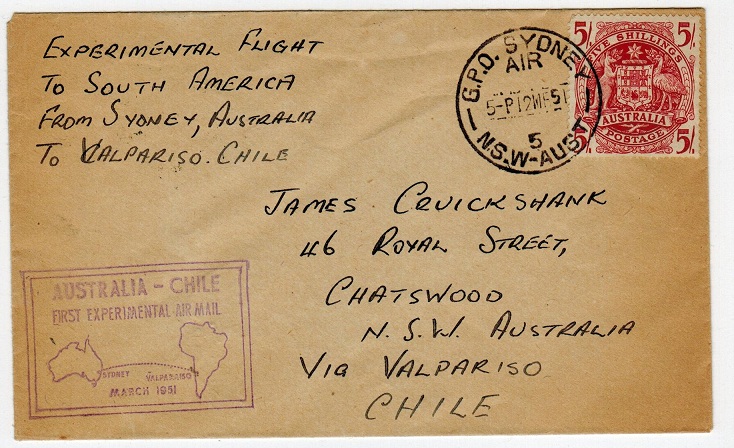 EXPERIMENTAL FLIGHT
TO SOUTH AMERICA
FROM SYDNEY, AUSTRALIA
TO VALPARISO. CHILE
G.P.O. SYDNEY
AIR
5-P12MR51
5
N.S.W-AUST
5/- 5/-
FIVE SHILLINGS
AUSTRALIA
POSTAGE
5/- 5/-
JAMES CRUICKSHANK
46 ROYAL STREET,
CHATSWOOD
N.S.W. AUSTRALIA
VIA VALPARISO
CHILE
AUSTRALIA - CHILE
FIRST EXPERIMENTAL AIR MAIL
SYDNEY VALPARAISO
MARCH 1951